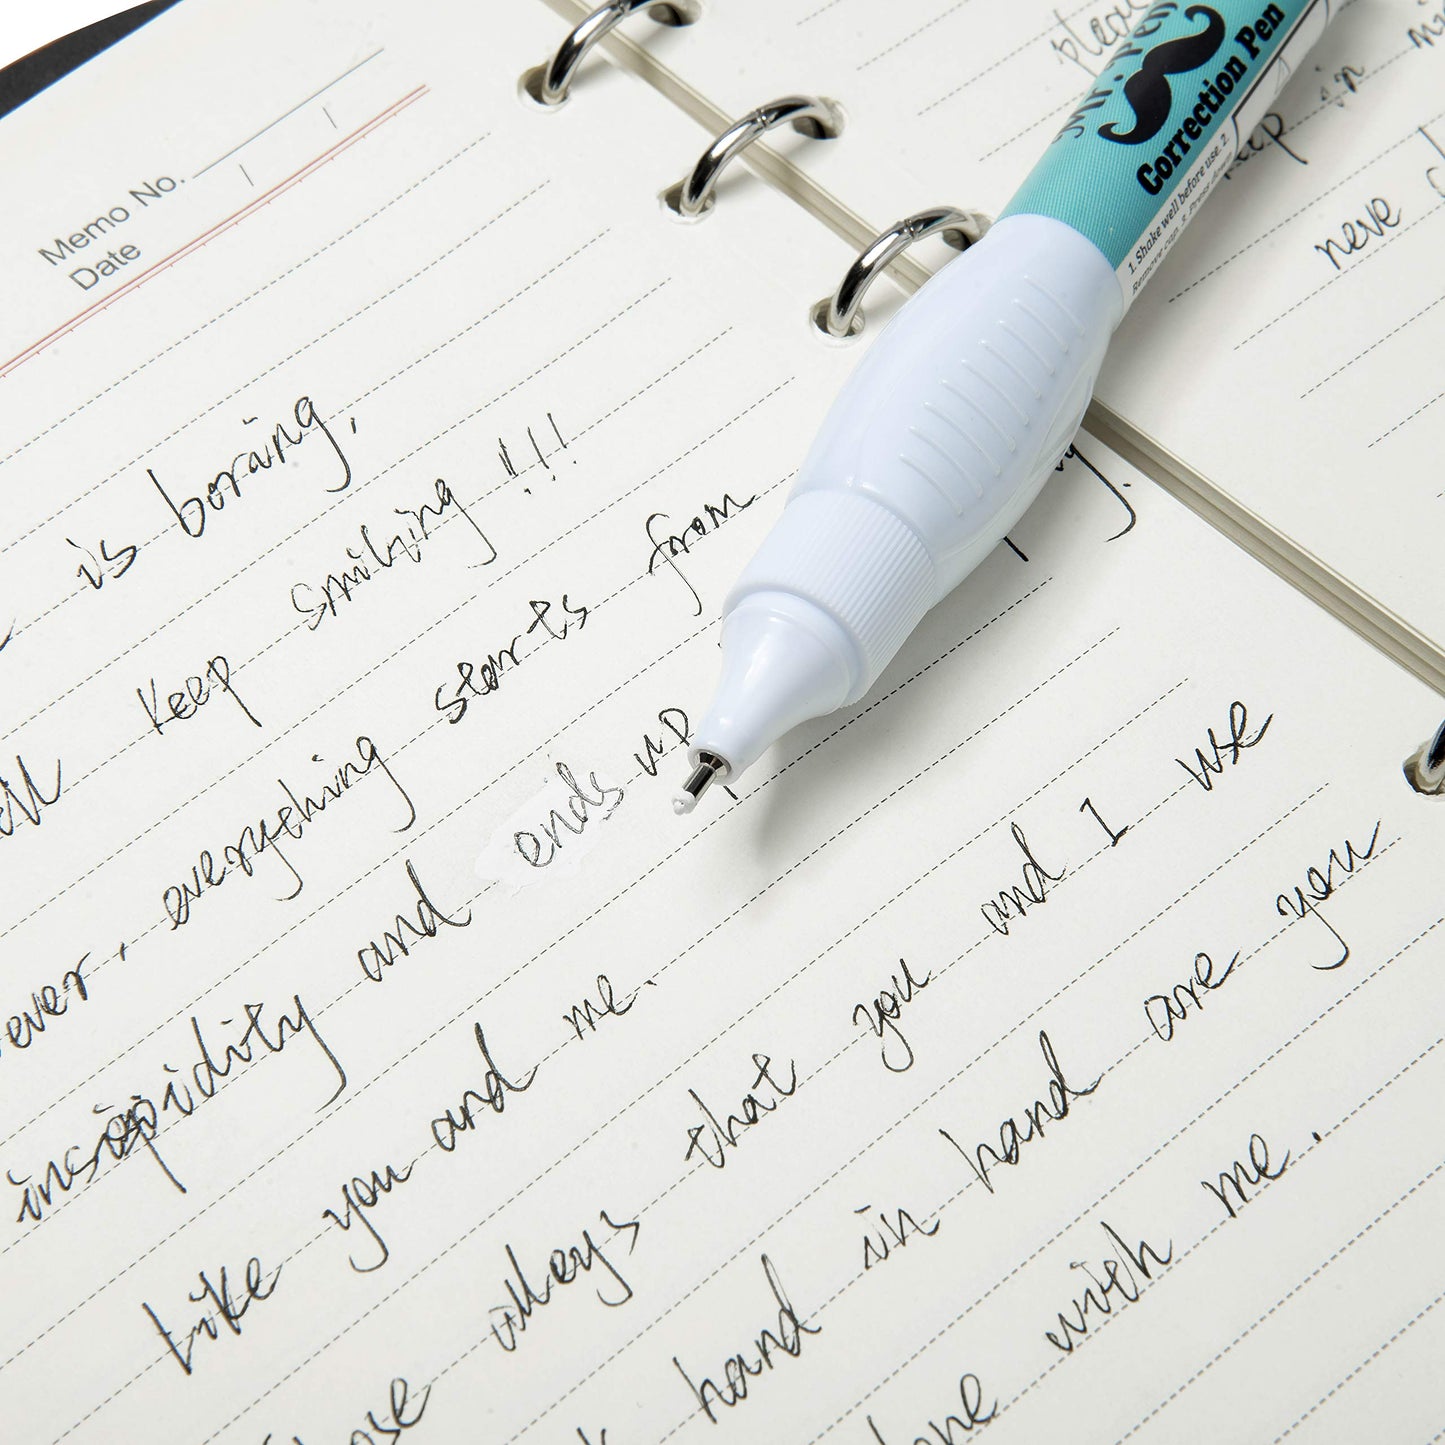 Memo No.
Date
is boring,
keep smiling !!!
ever, everything starts from
insipidity and ends up
like you and me.
alleys that you and I use
hand in hand are you
with me.
please
keep in
neve
Mr. Pen
Correction Pen
1. Shake well before use. 2.
Remove cap. 3. Press down